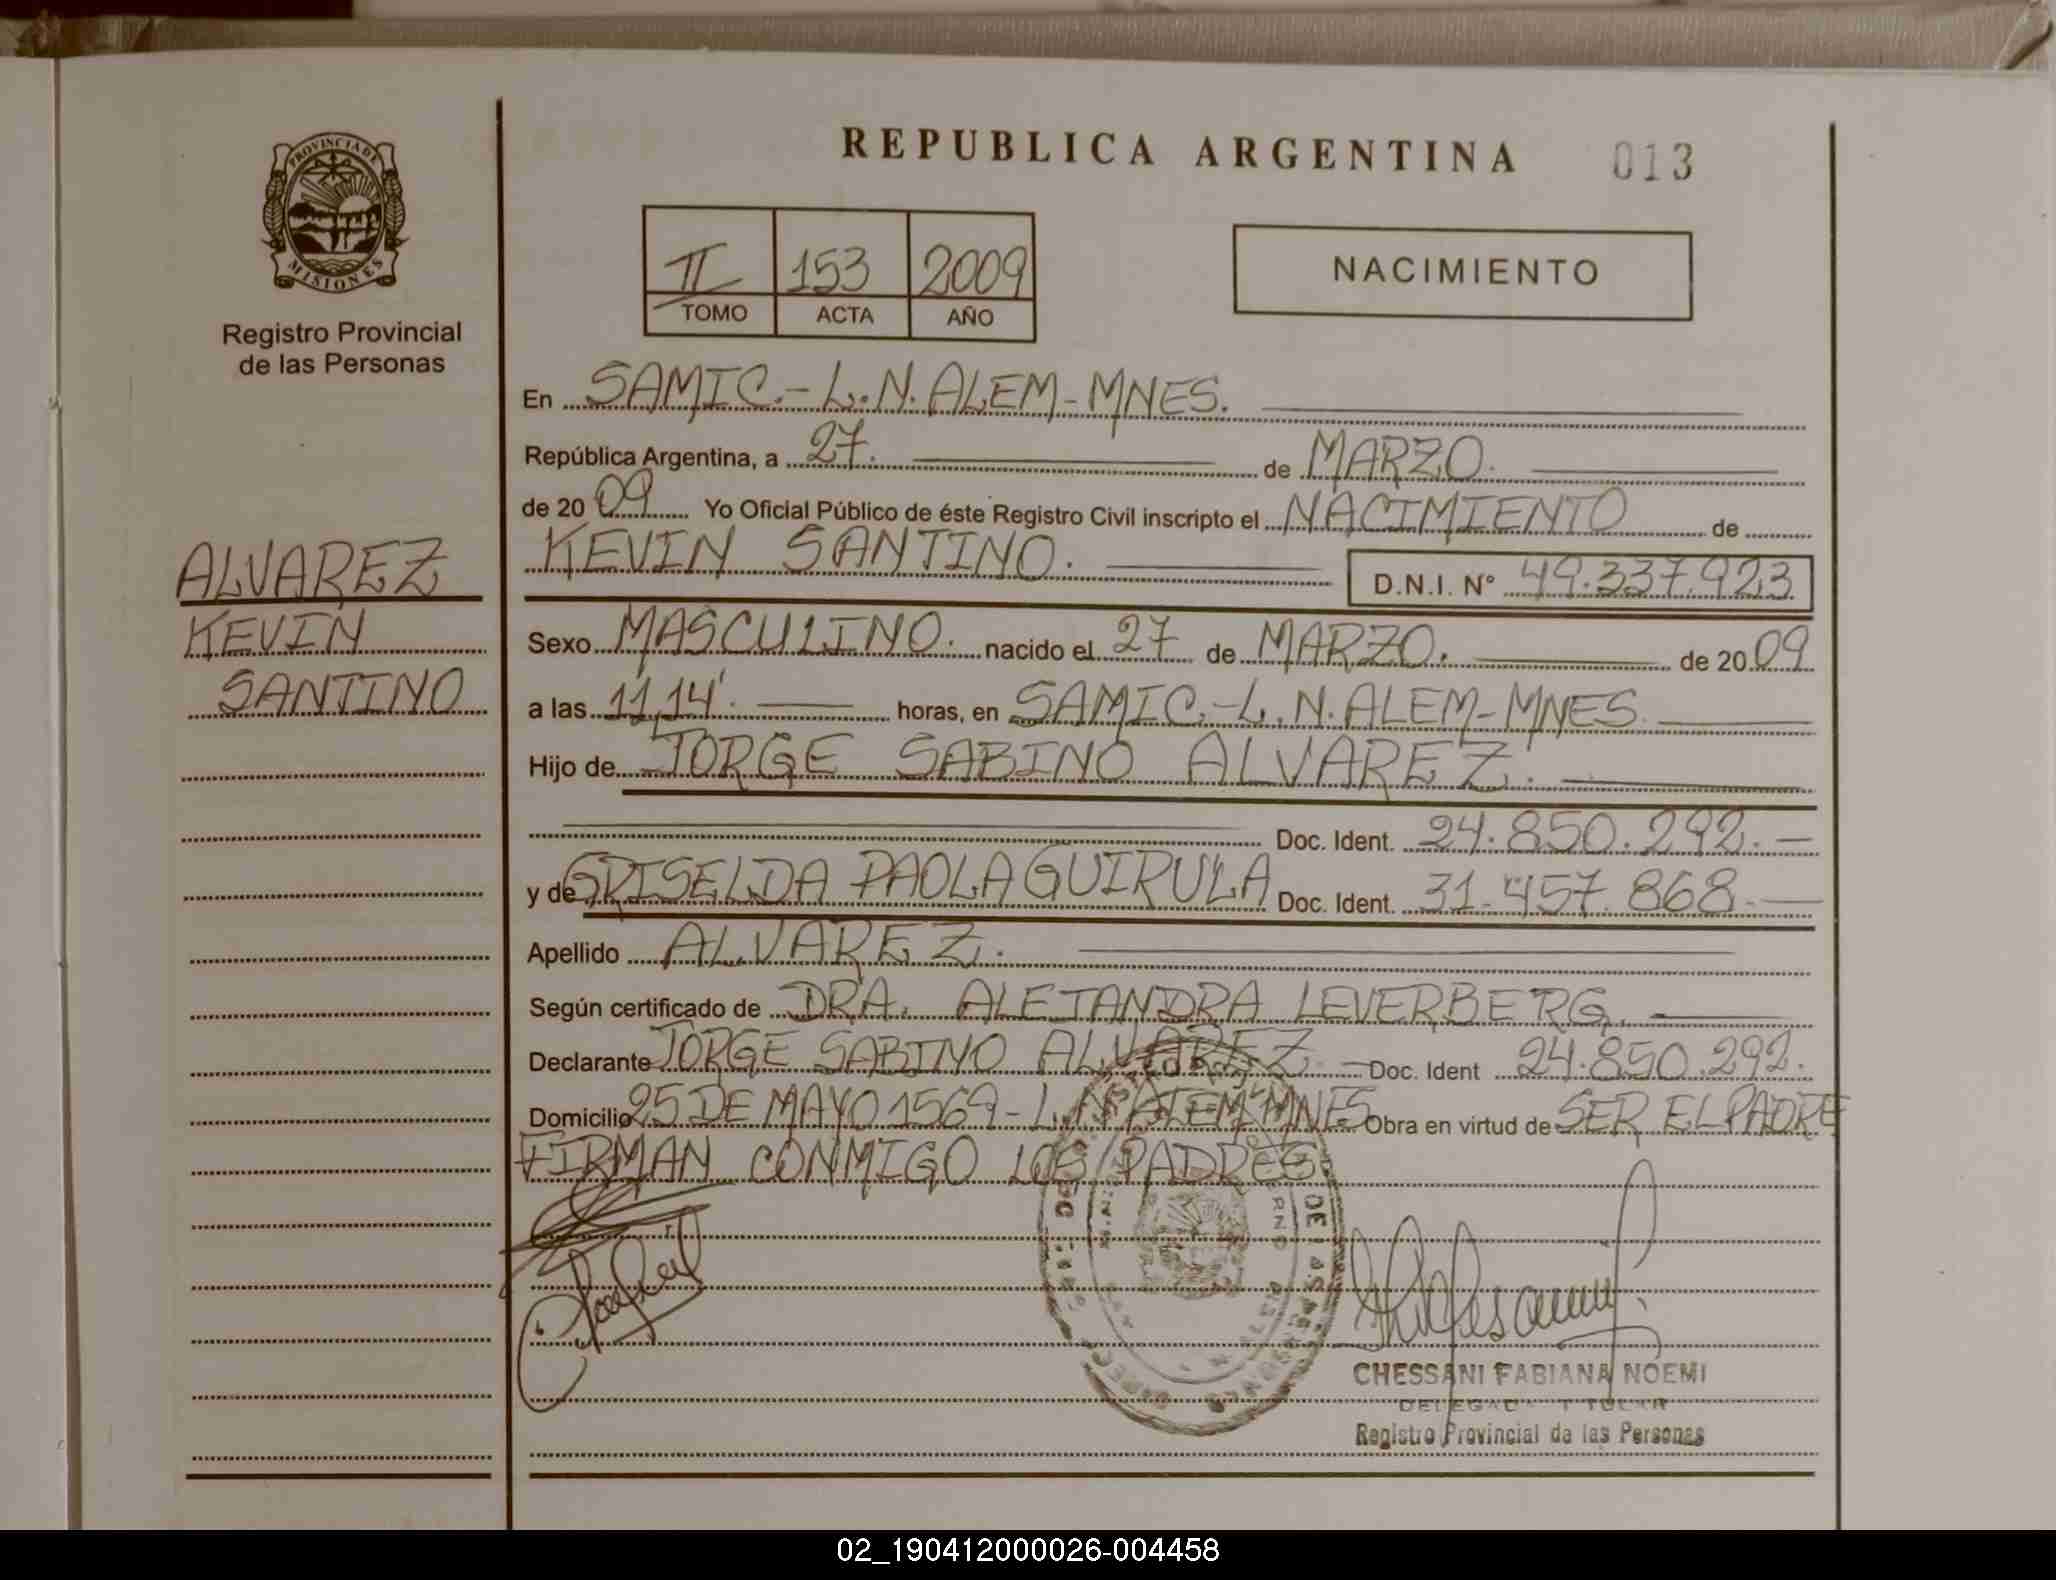 REPUBLICA ARGENTINA 013
PROVINCIA DE
MISIONES
Registro Provincial
de las Personas
II 153 2009
TOMO ACTA AÑO
NACIMIENTO
En SAMIC.-L.N.ALEM-MNES.
República Argentina, a 27. de MARZO.
de 2009 Yo Oficial Público de éste Registro Civil inscripto el NACIMIENTO de
KEVIN SANTINO. D.N.I. N° 49.337.923
ALVAREZ
KEVIN
SANTINO
Sexo MASCULINO. nacido el 27 de MARZO. de 2009
a las 11,14'. horas, en SAMIC.-L.N.ALEM-MNES.
Hijo de JORGE SABINO ALVAREZ.
Doc. Ident. 24.850.292.-
y de GRISELDA PAOLA GUIRULA Doc. Ident. 31.457.868.-
Apellido ALVAREZ.
Según certificado de DRA. ALEJANDRA LEVERBERG.
Declarante JORGE SABINO ALVAREZ.- Doc. Ident 24.850.292.
Domicilio 25 DE MAYO 1569-L.N.ALEM-MNES Obra en virtud de SER EL PADRE
FIRMAN CONMIGO LOS PADRES
CHESSANI FABIANA NOEMI
Registro Provincial de las Personas
02_190412000026-004458